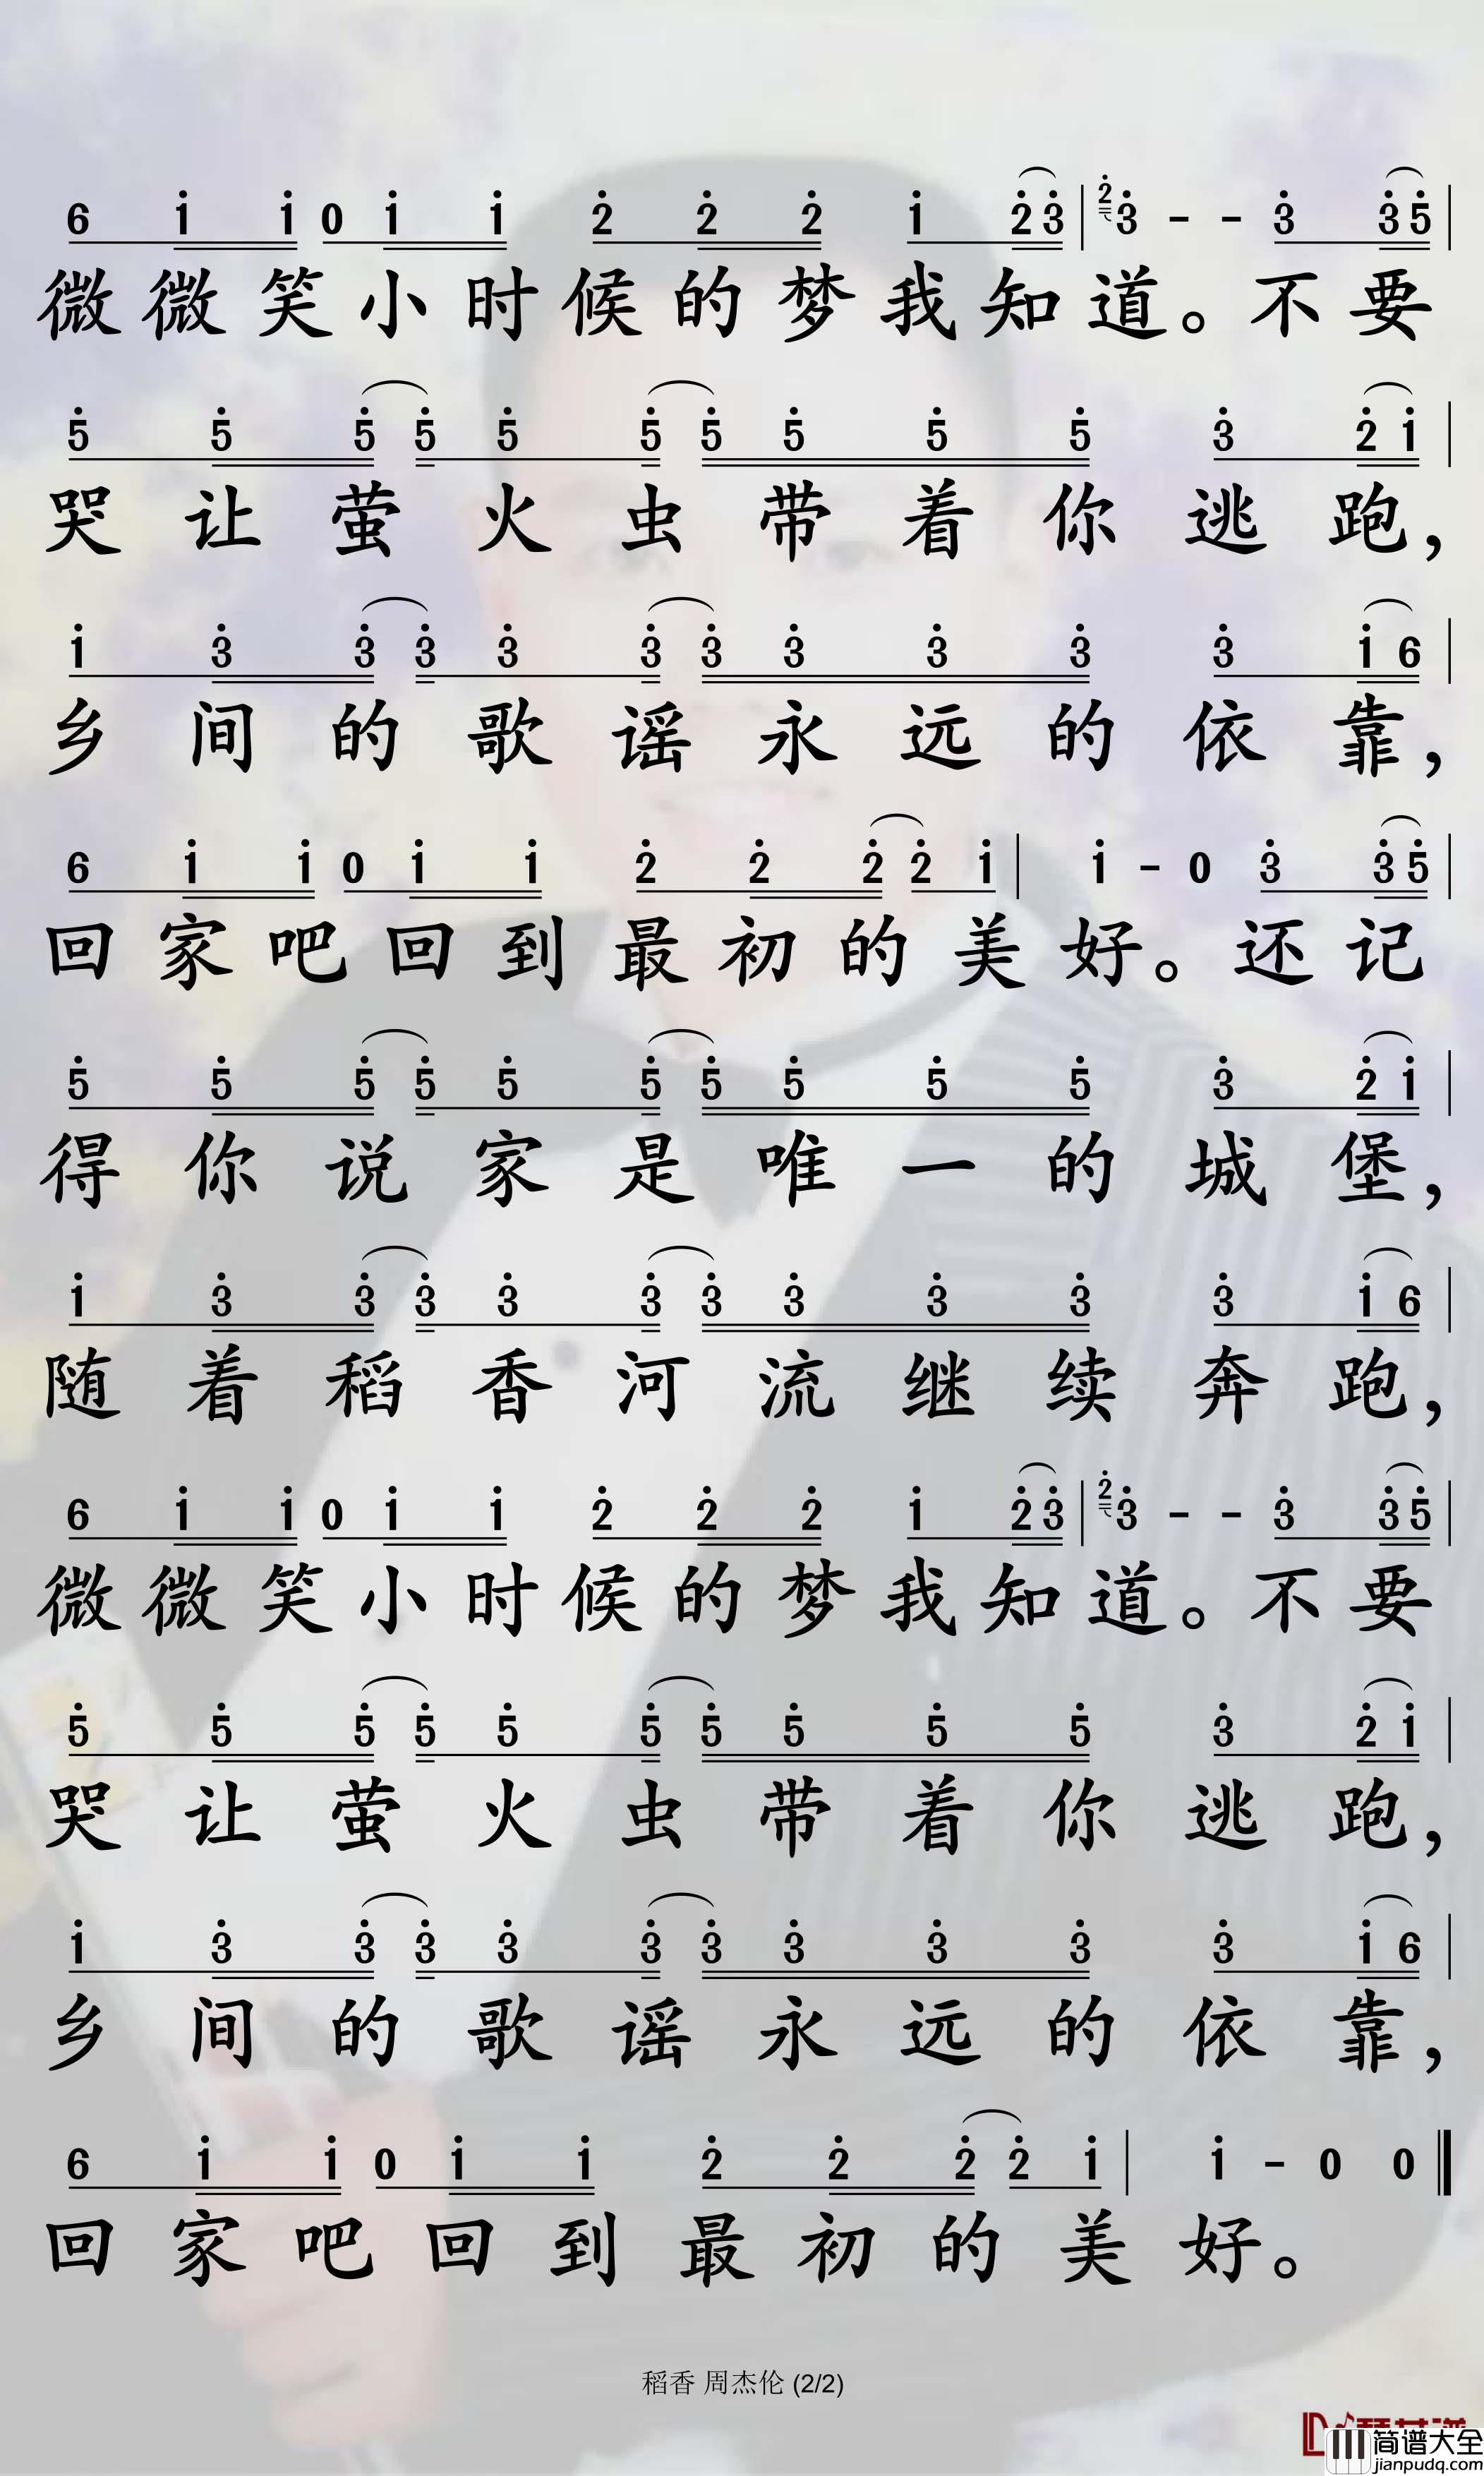 6 1 1 0 1 1 2 2 2 1 2 3 | 2 3 - - 3 3 5 |
微微笑小时候的梦我知道。不要
5 5 5 5 5 5 5 5 5 5 3 2 1 |
哭让萤火虫带着你逃跑，
1 3 3 3 3 3 3 3 3 3 3 1 6 |
乡间的歌谣永远的依靠，
6 1 1 0 1 1 2 2 2 2 1 | 1 - 0 3 3 5 |
回家吧回到最初的美好。还记
5 5 5 5 5 5 5 5 5 5 3 2 1 |
得你说家是唯一的城堡，
1 3 3 3 3 3 3 3 3 3 3 1 6 |
随着稻香河流继续奔跑，
6 1 1 0 1 1 2 2 2 1 2 3 | 2 3 - - 3 3 5 |
微微笑小时候的梦我知道。不要
5 5 5 5 5 5 5 5 5 5 3 2 1 |
哭让萤火虫带着你逃跑，
1 3 3 3 3 3 3 3 3 3 3 1 6 |
乡间的歌谣永远的依靠，
6 1 1 0 1 1 2 2 2 2 1 | 1 - 0 0 ‖
回家吧回到最初的美好。
稻香 周杰伦 (2/2)
简谱大全
jianpudq.com